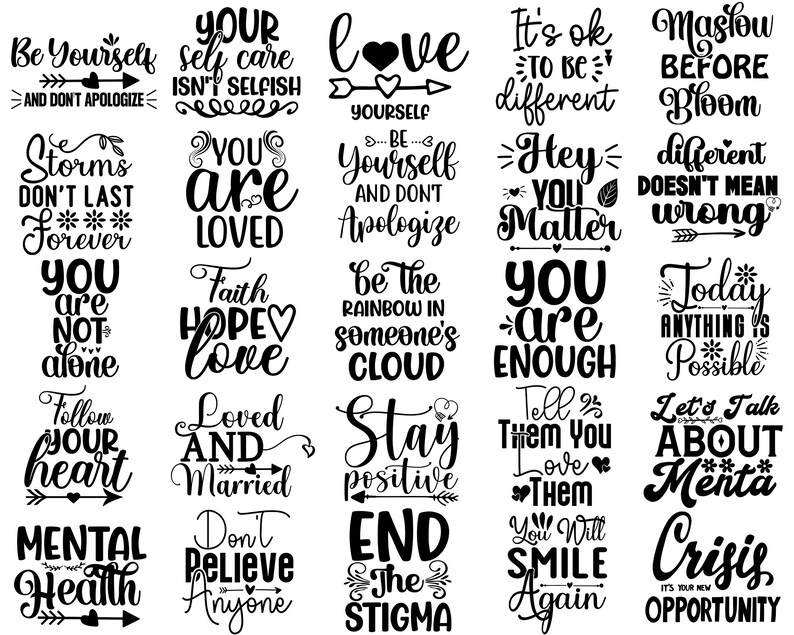 Be Yourself
AND DON'T APOLOGIZE
YOUR
self care
ISN'T SELFISH
love
YOURSELF
It's ok
TO BE
different
Maslow
BEFORE
Bloom
Storms
DON'T LAST
Forever
YOU
are
LOVED
BE
Yourself
AND DON'T
Apologize
Hey
YOU
Matter
different
DOESN'T MEAN
wrong
YOU
are
NOT
alone
Faith
HOPE
love
be the
RAINBOW IN
someone's
CLOUD
YOU
are
ENOUGH
Today
ANYTHING IS
Possible
Follow
YOUR
heart
Loved
AND
Married
Stay
positive
Tell
THEM YOU
Love
THEM
Let's Talk
ABOUT
Menta
MENTAL
Health
Don't
Pelieve
Anyone
END
The
STIGMA
You Will
SMILE
Again
Crisis
IT'S YOUR NEW
OPPORTUNITY